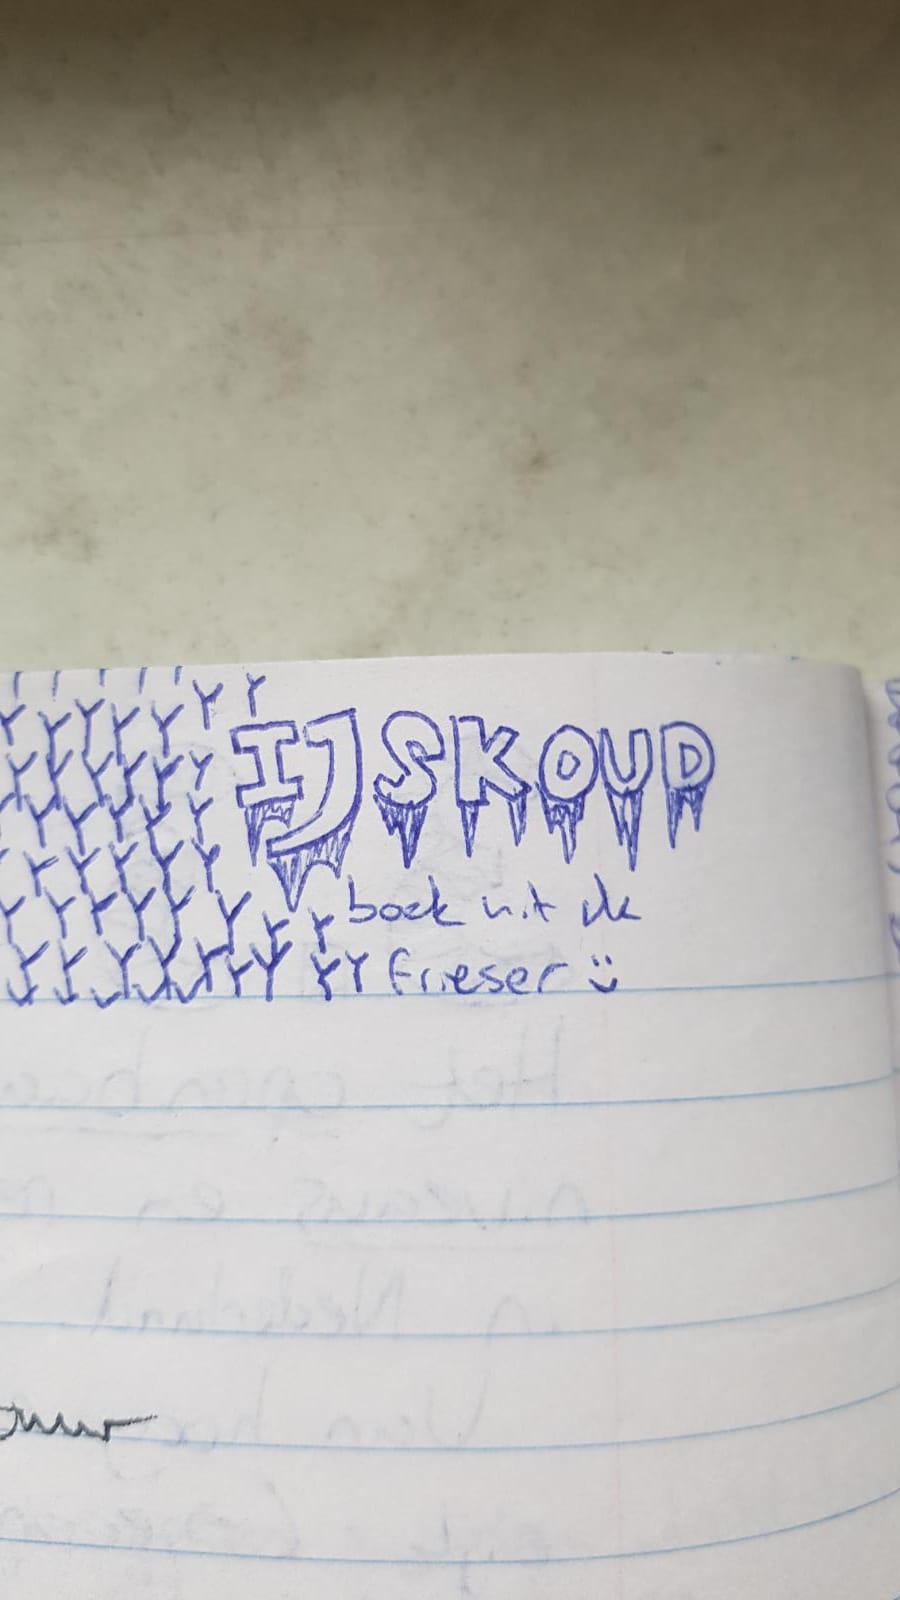 IJSKOUD
boek uit de
frieser :)